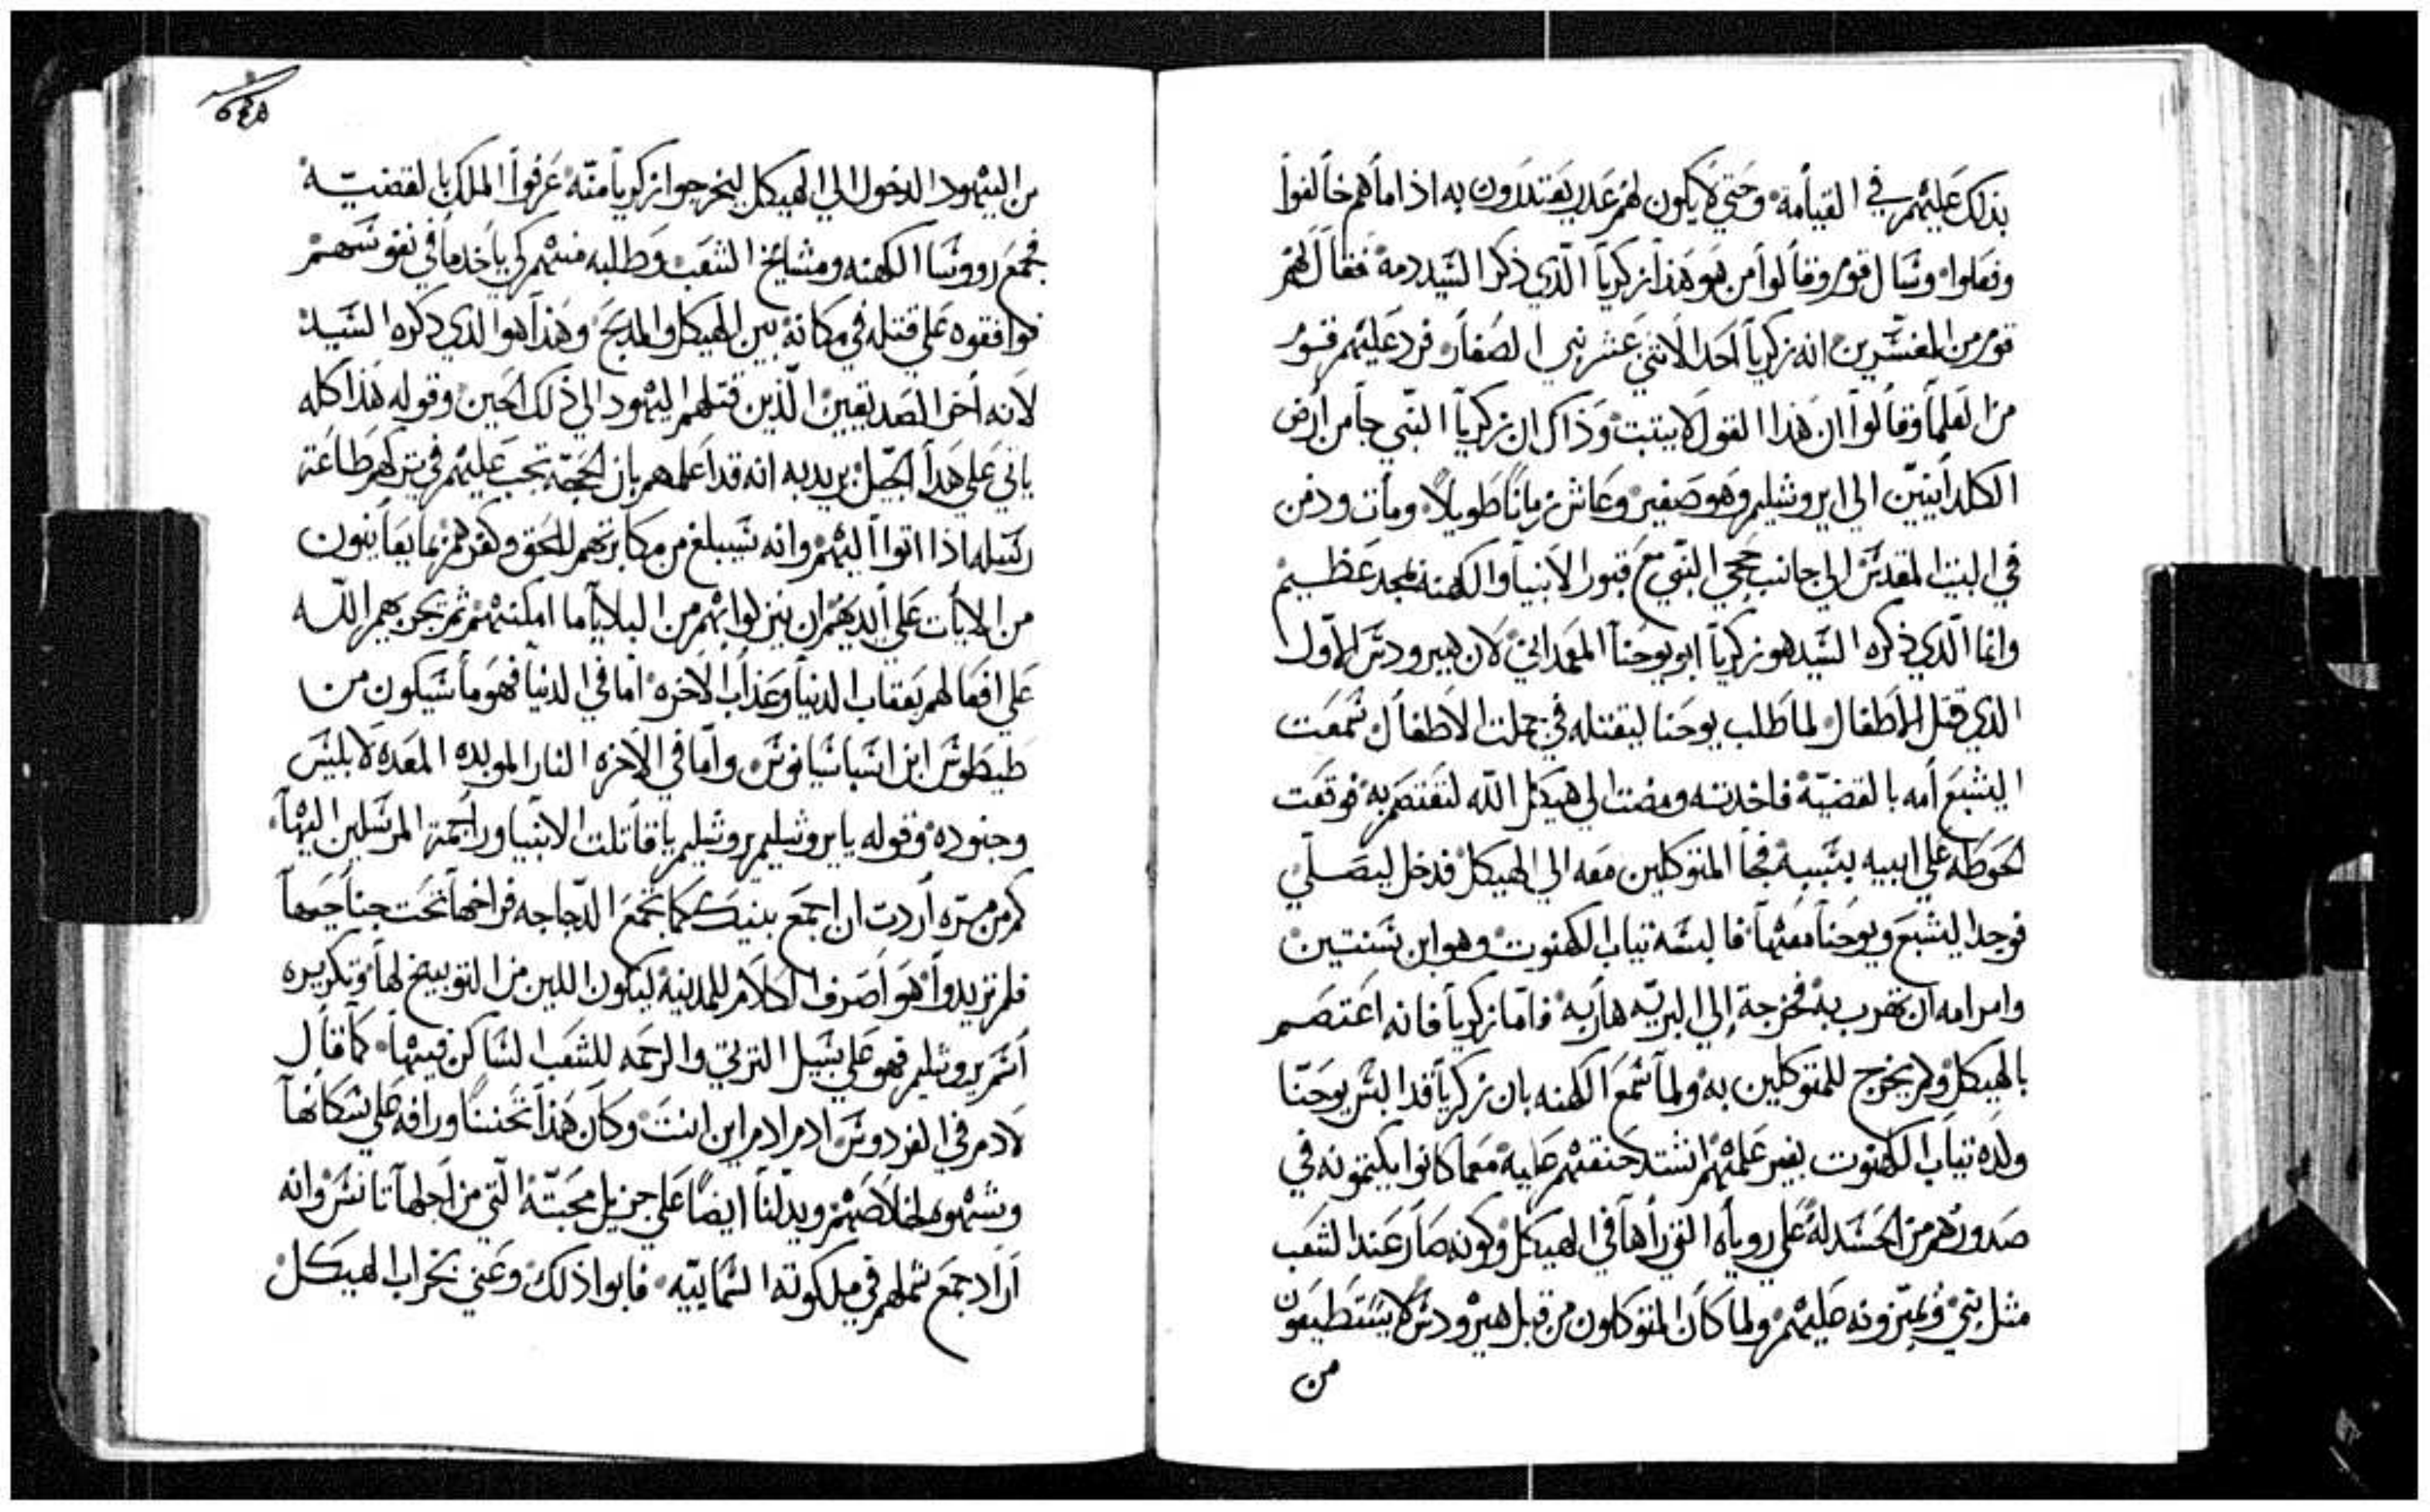 بذلك عليهم في القيامة وحتي لا يكون لهم عدر يعتدرون به اذا ما هم خالفوا
وفعلوا وسال قوم وقالوا من هو هذا زكريا الذي ذكر السيد دمه فقال لهم
قوم من المفسرين انه زكريا احد الاثني عشر نبي الصغار فرد عليهم قوم
من العلما وقالوا ان هذا القول لا يتبت وذاك ان زكريا النبي جا من ارض
الكلدانيين الي ايروشليم وهو صغير وعاش زمانا طويلا ومات ودفن
في البيت المقدس الي جانب حجي النبي مع قبور الانبيا والكهنه بمجد عظيم
وانما الذي ذكره السيد هو زكريا ابو يوحنا المعمداني لان هيرودس الاول
الذي قتل الاطفال لما طلب يوحنا ليقتله في جملت الاطفال سمعت
اليشبع امه بالقضية فاخدته ومضت الي هيكل الله لتعتصم به فوقعت
الحوطه علي ابيه بسببه فجا المتوكلين معه الي الهيكل فدخل ليصلي
فوجد اليشبع ويوحنا معها فالبسه تياب الكهنوت وهو ابن سنتين
وامر امه ان تهرب به فخرجة الي البريه هاربه فاما زكريا فانه اعتصم
بالهيكل ولم يخرج للمتوكلين به ولما سمع الكهنه بان زكريا قد البس يوحنا
ولده تياب الكهنوت بغير علمهم اشتد حنقهم عليه معما كانوا يكتمونه في
صدورهم من الحسد له علي روياه التي راها في الهيكل وكونه صار عند الشعب
مثل نبي ويميزونه عليهم ولما كان المتوكلون من قبل هيرودس لا يستطيعون
من
من اليهود الدخول الي الهيكل ليخرجوا زكريا منه عرفوا الملك بالقضية
فجمع رووسا الكهنه ومشايخ الشعب وطلبه منهم كي ياخد ما في نفوسهم
فوافقوه علي قتله في مكانه بين الهيكل والمدبح وهذا هو الذي دكره السيد
لانه اخر الصديقين الذين قتلهم اليهود الي ذلك الحين وقوله هذا كله
ياتي علي هدا الجيل يريد به انه قد اعلمهم بان الحجة تجب عليهم في تركهم طاعة
رسله اذا اتوا اليهم وانه سيبلغ من مكابرتهم للحق وكفرهم بما يعاينون
من الايات علي ايديهم ان ينزلوا بهم من البلايا ما امكنهم ثم يجزيهم الله
علي افعالهم بعقاب الدنيا وعذاب الاخره اما في الدنيا فهو ما سيكون من
طيطوس ابن اسباسيانوس واما في الاخره النار الموبده المعده لابليس
وجنوده وقوله يا يروشليم يروشليم يا قاتلت الانبيا وراجمة المرسلين اليها
كم من مره اردت ان اجمع بنيك كما تجمع الدجاجه فراخها تحت جناحيها
فلم تريدوا هو اصرف الكلام للمدينة ليكون اللين من التوبيخ لها وتكريره
اسم يروشليم فهو علي سبيل الترتي والرحمه للشعب الساكن فيها كما قال
لادم في الفردوس ادم ادم اين انت وكان هذا تحننا ورافه علي سكانها
وشهوه لخلاصهم ويدلنا ايضا علي جزيل محبته التي من اجلها تانس وانه
اراد جمع شملهم في ملكوته السمايية فابوا ذلك وعني بخراب الهيكل